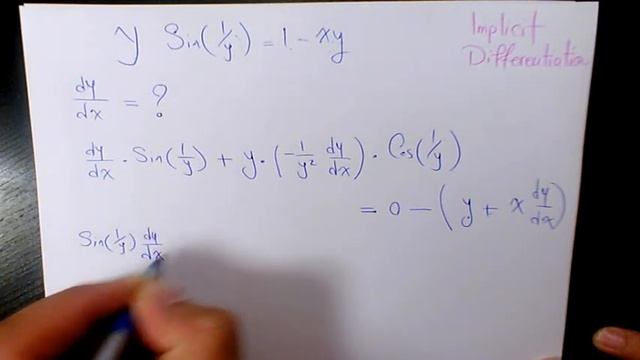 y Sin(1/y) = 1 - xy
Implicit
Differentiation
dy/dx = ?
dy/dx · Sin(1/y) + y · (-1/y² dy/dx) · Cos(1/y)
= 0 - (y + x dy/dx)
Sin(1/y) dy/dx